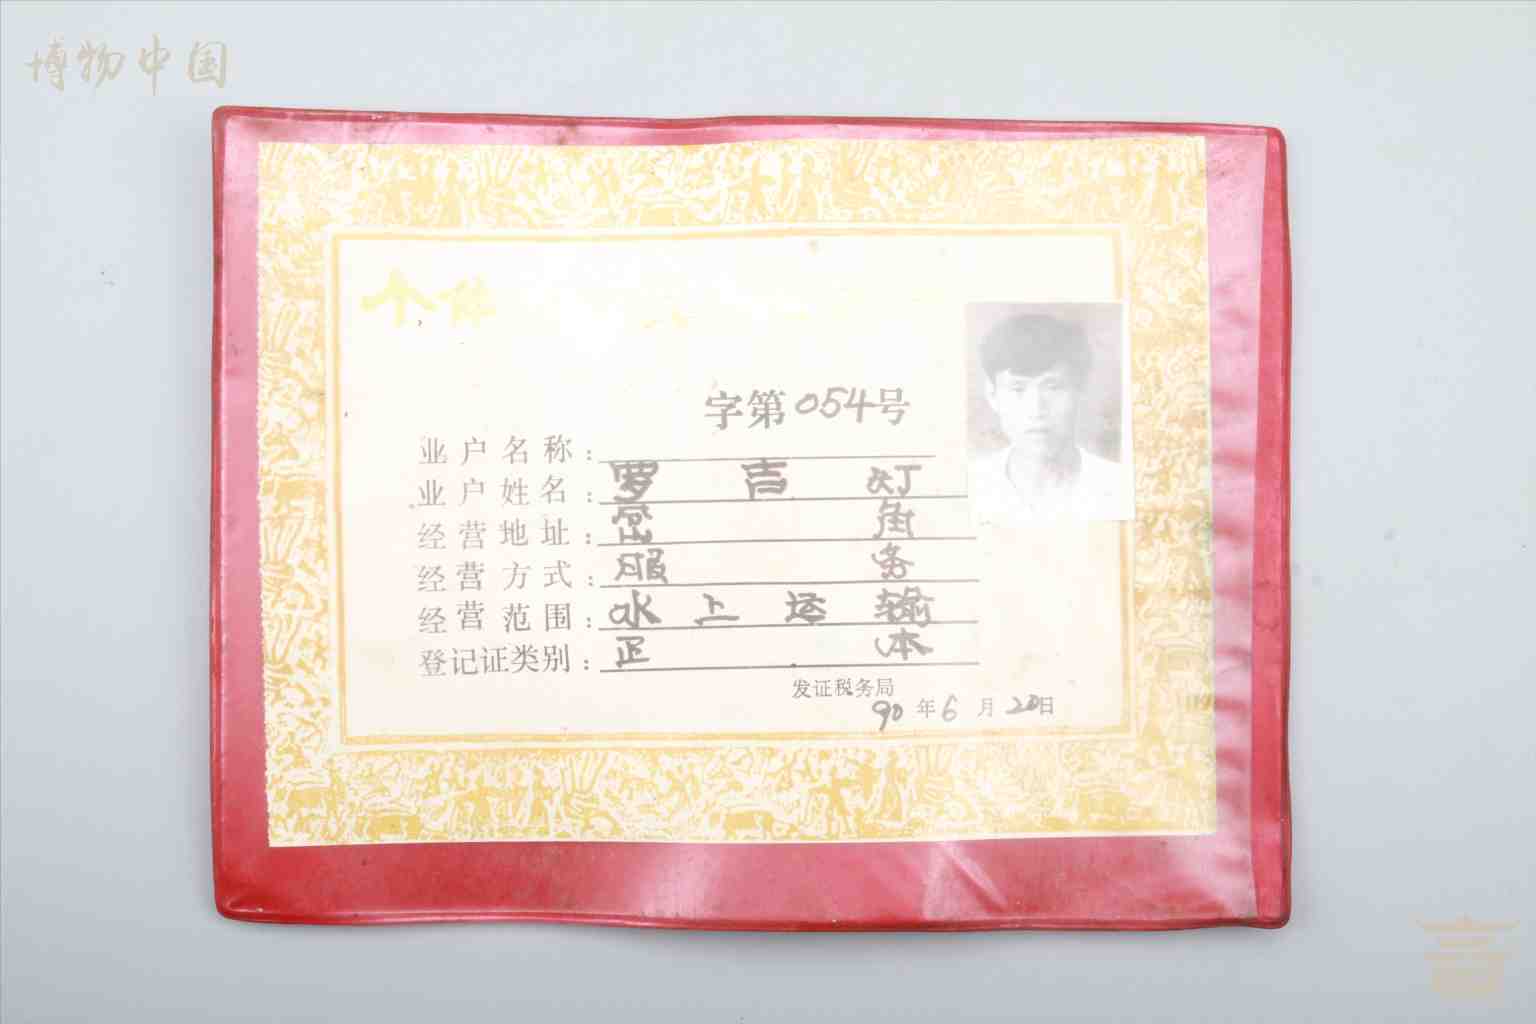 博物中国
个体
字第054号
业户名称：
业户姓名：罗吉灯
经营地址：
经营方式：服务
经营范围：水上运输
登记证类别：正本
发证税务局
90年6月20日